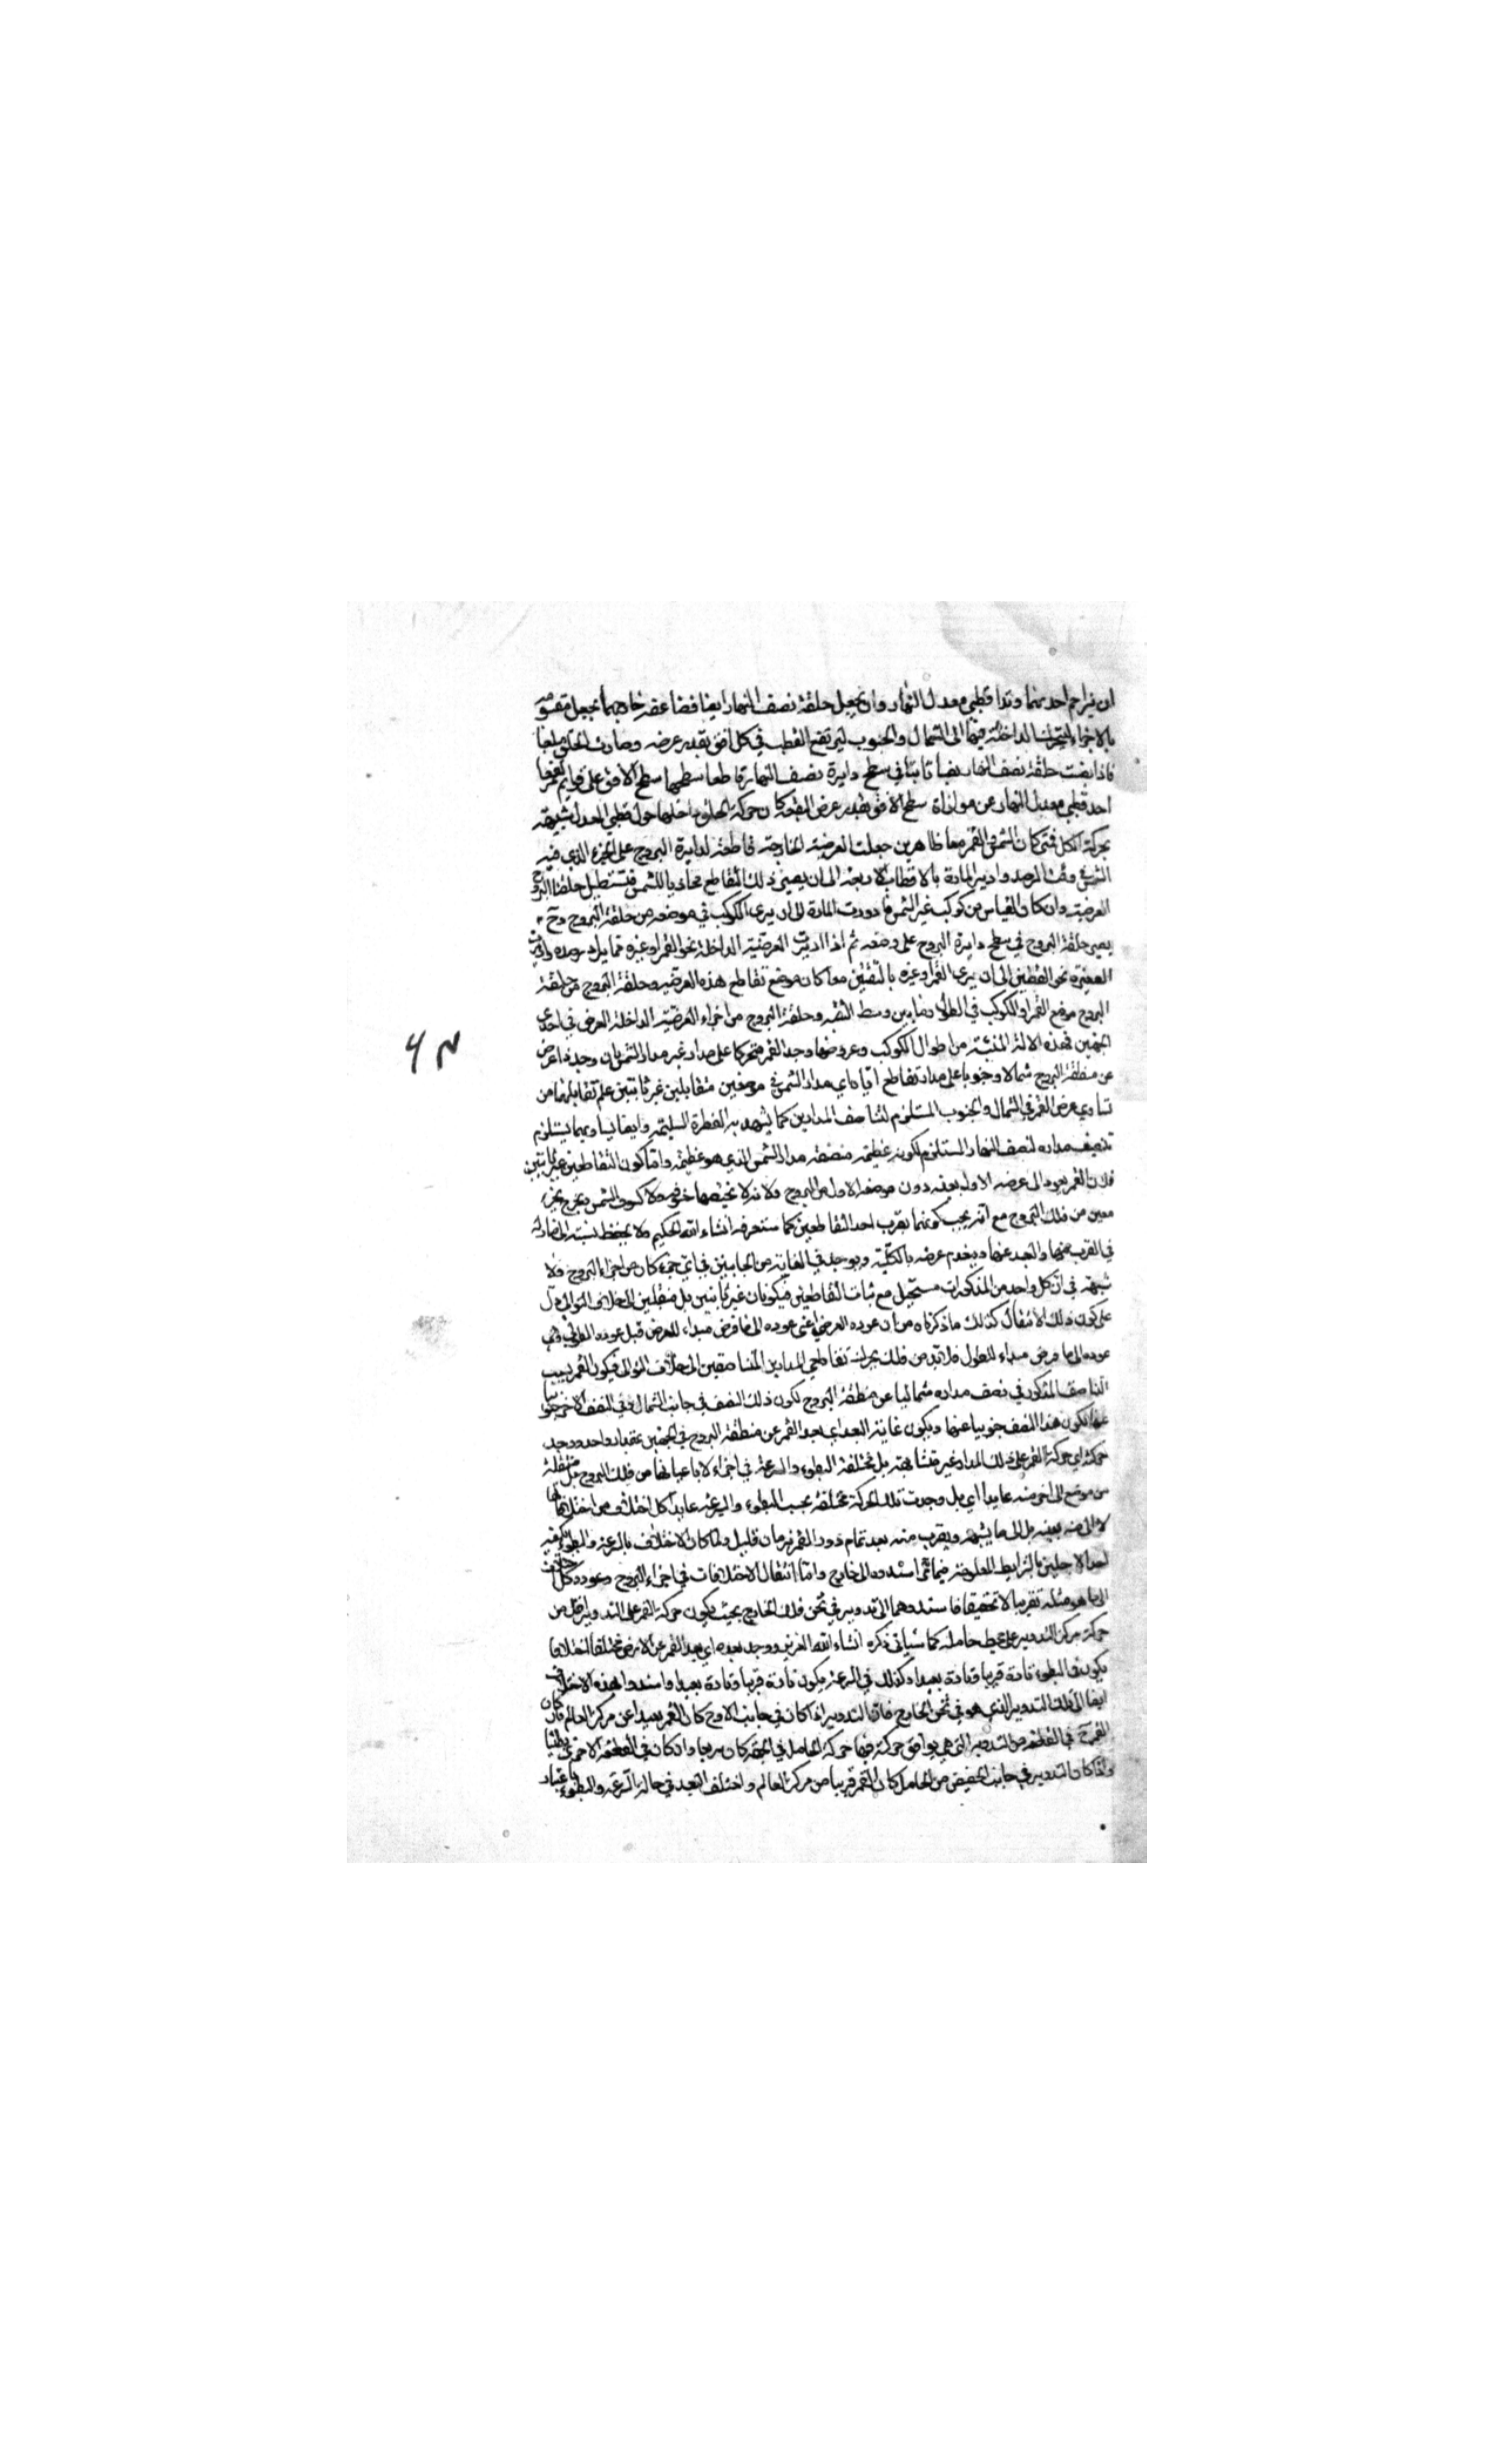 ان يزاحم احد منهما وتدا قطبي معدل النهار وان يجعل حلقة نصف النهار ايضا فضا عقر خارجهما بجعل مقسومة
بالاجزاء لتتحرك الداخلة فيها الى الشمال والجنوب ليرتفع القطب في كل افق بقدر عرضه وصارت الحلق سبعا
فاذا نصبت حلقة نصف النهار نصبا ثابتا في سطح دايرة نصف النهار قاطعا سطحها سطح الافق على قوايم مرتفعا
احد قطبي معدل النهار عن موازاة سطح الافق بقدر عرض البقعة كان حركة الحلق داخلها حول قطبي المعدل شبيهة
بحركة الكل فمتى كان الشمس والقمر معا ظاهرين جعلت العرضية الخارجة قاطعة لدايرة البروج على الجزء الذي فيه
الشمس وقت الرصد وادير المادة بالاقطاب الاربعة الى ان يصير ذلك التقاطع محاذيا للشمس فتستظل حلقتا البروج
العرضية وان كان القياس من كوكب غير الشمس فادورت المادة الى ان يرى الكوكب في موضعه من حلقة البروج وح
يصير حلقة البروج في سطح دايرة البروج على وضعه ثم اذا اديرت العرضية الداخلة نحو القمر او غيره مما يراد رصده واديرت
الصغيرة نحو القطبين الى ان يرى القمر او غيره بالثقبتين معا كان موضع تقاطع هذه العرضية وحلقة البروج من حلقة
البروج موضع القمر او الكوكب في الطول وما بين وسط الثقبة وحلقة البروج من اجزاء العرضية الداخلة العرض في احدى
الجهتين فبهذه الالة من اطوال الكوكب وعروضها وجد القمر متحركا على مدار غير مدار الشمس بان وجد ذا عرض
عن منطقة البروج شمالا وجنوبا على مدار تقاطع اياه اي مدار الشمس في موضعين متقابلين غير ثابتين علم تقابلهما من
تساوي عرض القمر في الشمال والجنوب المستلزم لتناصف المدارين كما يشهد به الفطرة السليمة وايضا تساويهما يستلزم
تنصيف مداره لنصف النهار المستلزم لكونه عظيمة منصفة مدار الشمس الذي هو عظيمة واما كون التقاطعين غير ثابتين
فلان القمر يعود الى عرضه الاول بعينه دون موضعه الاول من البروج ولانه لا يختص خسوفه ولا كسوف الشمس بجزء بجزء
معين من فلك البروج مع انه يجب كونهما بقرب احد التقاطعين كما ستعرفه انشاء الله الحكيم ولا يحفظ نسبته الى
في القرب منها والبعد عنها وينعدم عرضه بالكلية ويوجد في الغاية من الجانبين في اي جزء كان من اجزاء البروج ولا
شبهة في ان كل واحد من المذكورات مستحيل مع ثبات التقاطعين فيكونان غير ثابتين بل منتقلين الى خلاف التوالى ودل
على كون ذلك الانتقال كذلك ما ذكرناه من ان عوده العرضي اعني عوده الى ما فرض مبداء للعرض قبل عوده الطولي وهو
عوده الى ما فرض مبداء للطول فلا بد من فلك يحرك تقاطعي المدارين المتناصفين الى خلاف التوالى فيكون القمر بسبب
التناصف المذكور في نصف مداره شماليا عن منطقة البروج لكون ذلك النصف في جانب الشمال وفي النصف الاخر جنوبيا
عنها لكون هذا النصف جنوبيا عنها ويكون غاية البعد اي بعد القمر عن منطقة البروج في الجهتين بمقدار واحد ووجد
حركته اي حركة القمر على ذلك المدار غير متشابهة بل مختلفة البطوء والسرعة في اجزاء لا باعيانها من فلك البروج بل منتقلة
من موضع الى اخر منه عايدا اي بل وجدت تلك الحركة مختلفة بحسب البطوء والسرعة عايدا كل اختلاف من اختلافاتها
لا الى منه بعينه بل الى ما يشبهه ويقرب منه بعد تمام دور القمر بزمان قليل ولما كان الاختلاف بالسرعة والبطوء
احد الاصلين بالشرايط المعلومة فيما ثم اسندوه الى خارج واما انتقال الاختلافات في اجزاء البروج وعود كل اختلاف
الى ما هو مثله تقريبا لا تحقيقا فاسندوهما الى تدوير في ثخن فلك الخارج بحيث يكون حركة القمر على التدوير اقل من
حركة مركز التدوير على محيط حامله كما سياتي ذكره انشاء الله العزيز ووجد بعده اي بعد القمر عن الارض مختلفا اختلافا
يكون في البطوء تارة قريبا وتارة بعيدا وكذلك في السرعة يكون تارة قريبا وتارة بعيدا واسندوا هذه الاختلافات
ايضا الى ذلك التدوير الذي هو في ثخن الخارج فان التدوير اذا كان في جانب الاوج كان القمر بعيدا عن مركز العالم فان كان
القمر ح في القطعة من التدوير التي هي يوافق حركته فيها حركة الحامل في الجهة كان سريعا وان كان في القطعة الاخرى بطيئا
واذا كان التدوير في جانب الحضيض من الحامل كان القمر قريبا من مركز العالم واختلف البعد في حالة السرعة والبطوء باعتبار